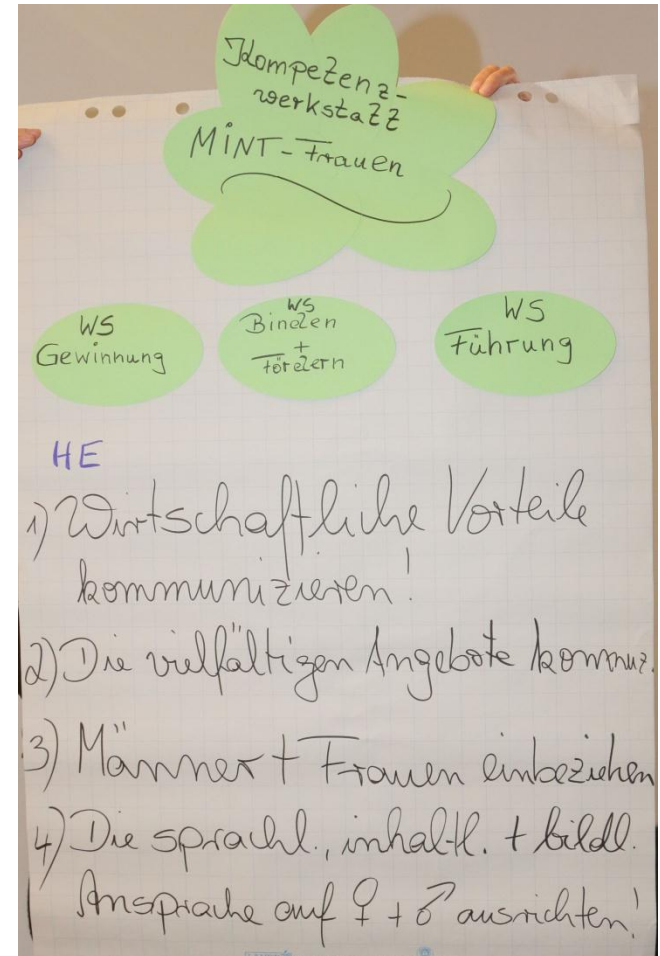 Kompetenz-
werkstatt
MINT-Frauen
WS
Gewinnung
WS
Binden
+
fördern
WS
Führung
HE
1) Wirtschaftliche Vorteile
kommunizieren!
2) Die vielfältigen Angebote kommuz.
3) Männer + Frauen einbeziehen
4) Die sprachl., inhaltl. + bildl.
Ansprache auf ♀ + ♂ ausrichten!